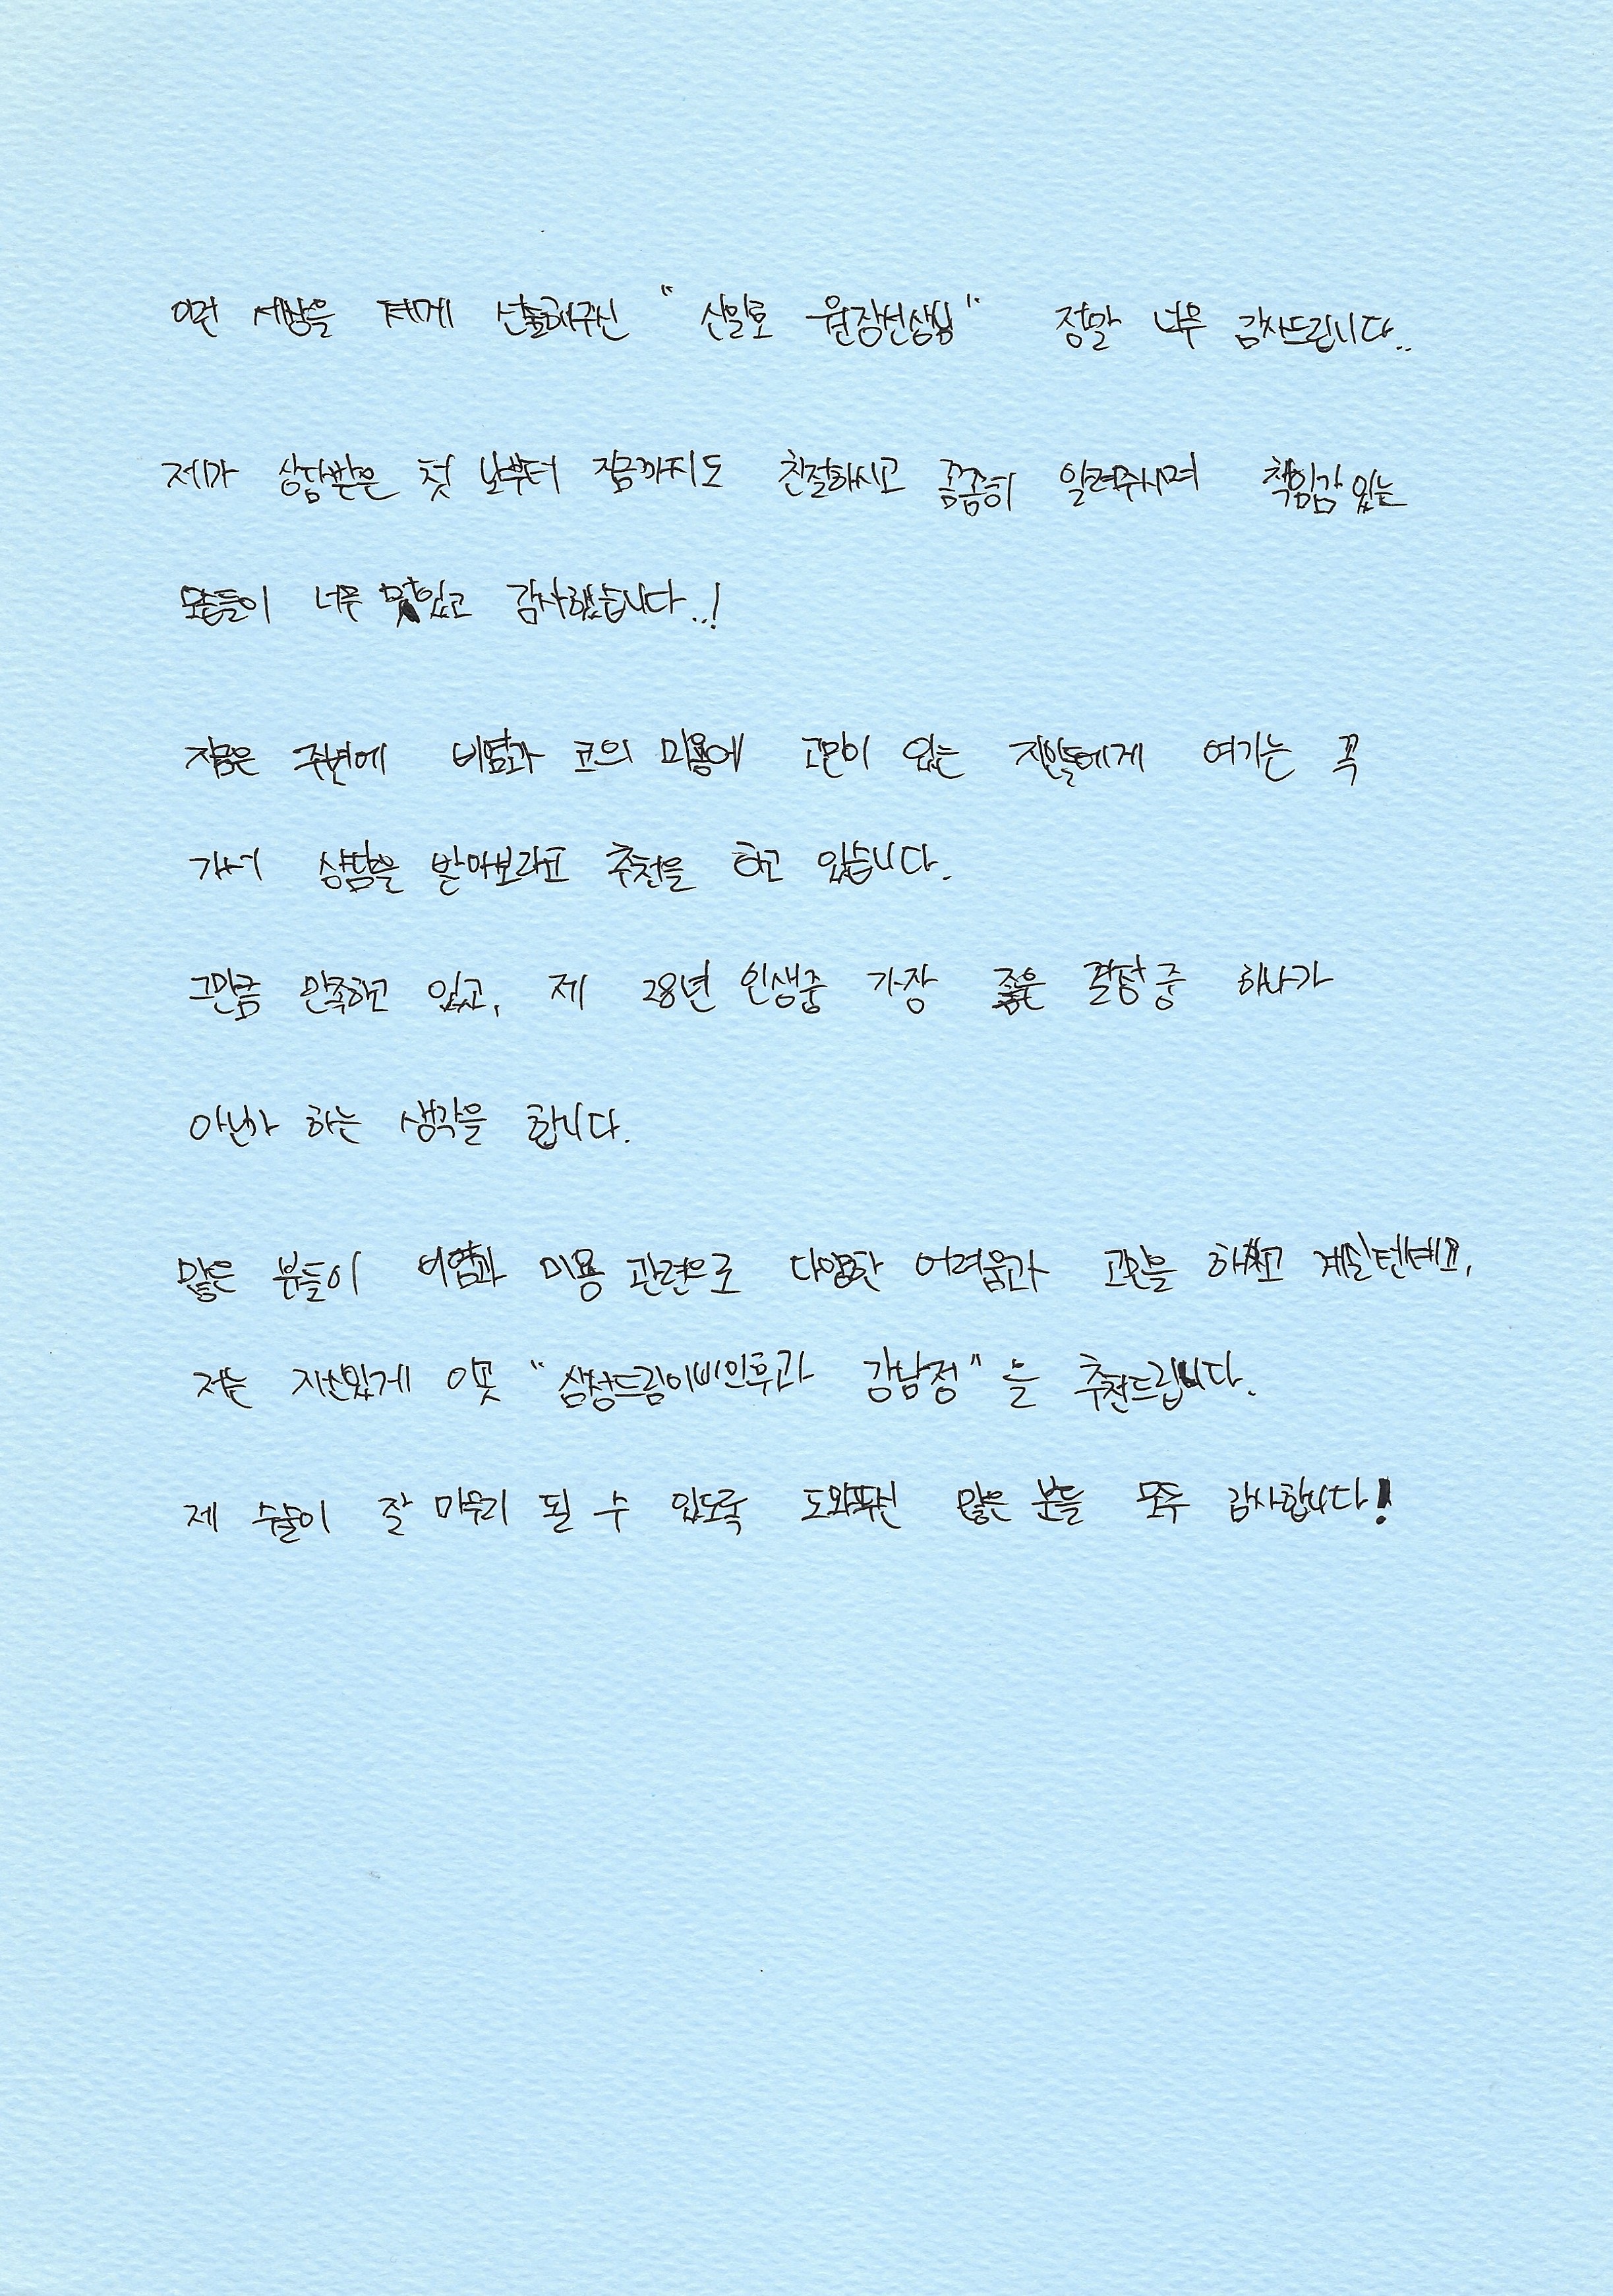 이런 세상을 저에게 선물해주신 "신일호 원장선생님" 정말 너무 감사드립니다..
제가 상담받은 첫 날부터 지금까지도 친절하시고 꼼꼼히 알려주시며 책임감 있는
모습들이 너무 멋있고 감사했습니다..!
지금은 주변에 비염과 코의 미용에 고민이 있는 지인들에게 여기는 꼭
가서 상담을 받아보라고 추천을 하고 있습니다.
그만큼 만족하고 있고, 제 28년 인생중 가장 좋은 결정 중 하나가
아닌가 하는 생각을 합니다.
많은 분들이 비염과 미용 관련으로 다양한 어려움과 고민을 하시고 계실텐데요,
저는 자신있게 이곳 "삼성드림이비인후과 강남점"을 추천드립니다.
제 수술이 잘 마무리 될 수 있도록 도와주신 많은 분들 모두 감사합니다!